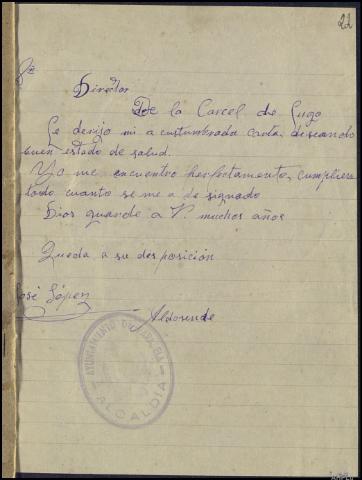 22
Sr
Director
De la Carcel de Lugo
Le derijo mi a custumbrada carta, deseando
buen estado de salud.
Yo me encuentro perfectamente, cumpliera
todo cuanto se me a de signado
Dios guarde a V. muchos años
Queda a su des posición
José López
Aldosende
AYUNTAMIENTO DE
ALCALDIA